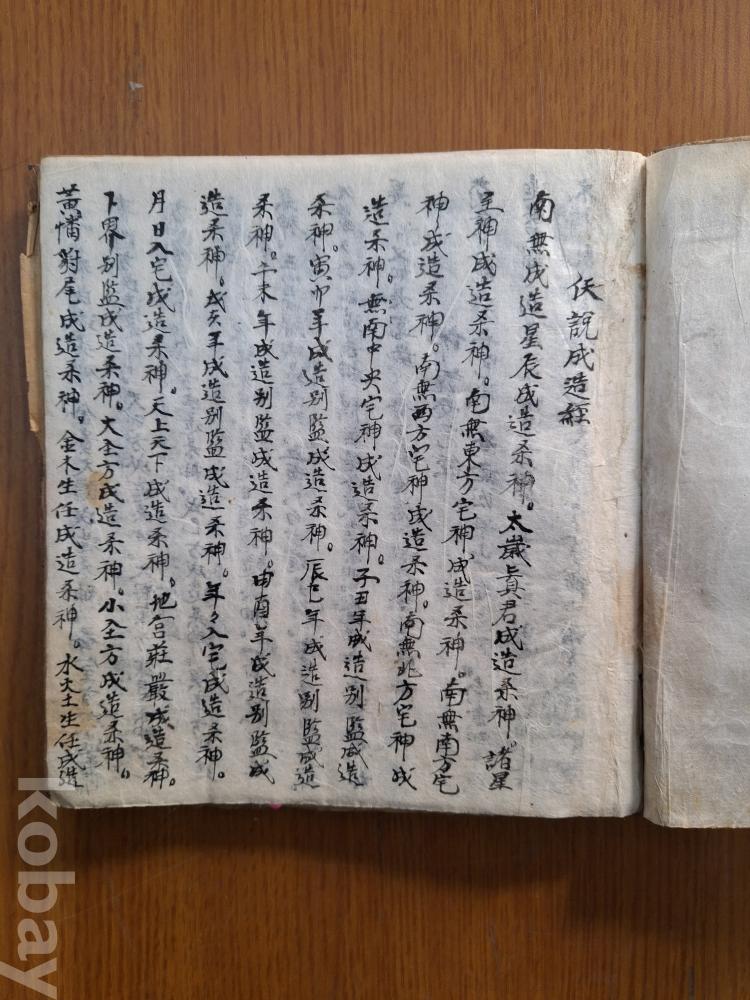 仸說成造經
南無成造星辰成造桒神。太歲眞君成造桒神。諸星
王神成造桒神。南無東方宅神成造桒神。南無南方宅
神成造桒神。南無西方宅神成造桒神。南無北方宅神成
造桒神。無南中央宅神成造桒神。子丑年成造別監成造
桒神。寅卯年成造別監成造桒神。辰巳年成造別監成造
桒神。午未年成造別監成造桒神。申酉年成造別監成
造桒神。戌亥年成造別監成造桒神。年々入宅成造桒神。
月日入宅成造桒神。天上天下成造桒神。地宮莊嚴成造桒神。
下界別監成造桒神。大全方成造桒神。小全方成造桒神。
黃幡豹尾成造桒神。金木生任成造桒神。水火土生任成造
kobay